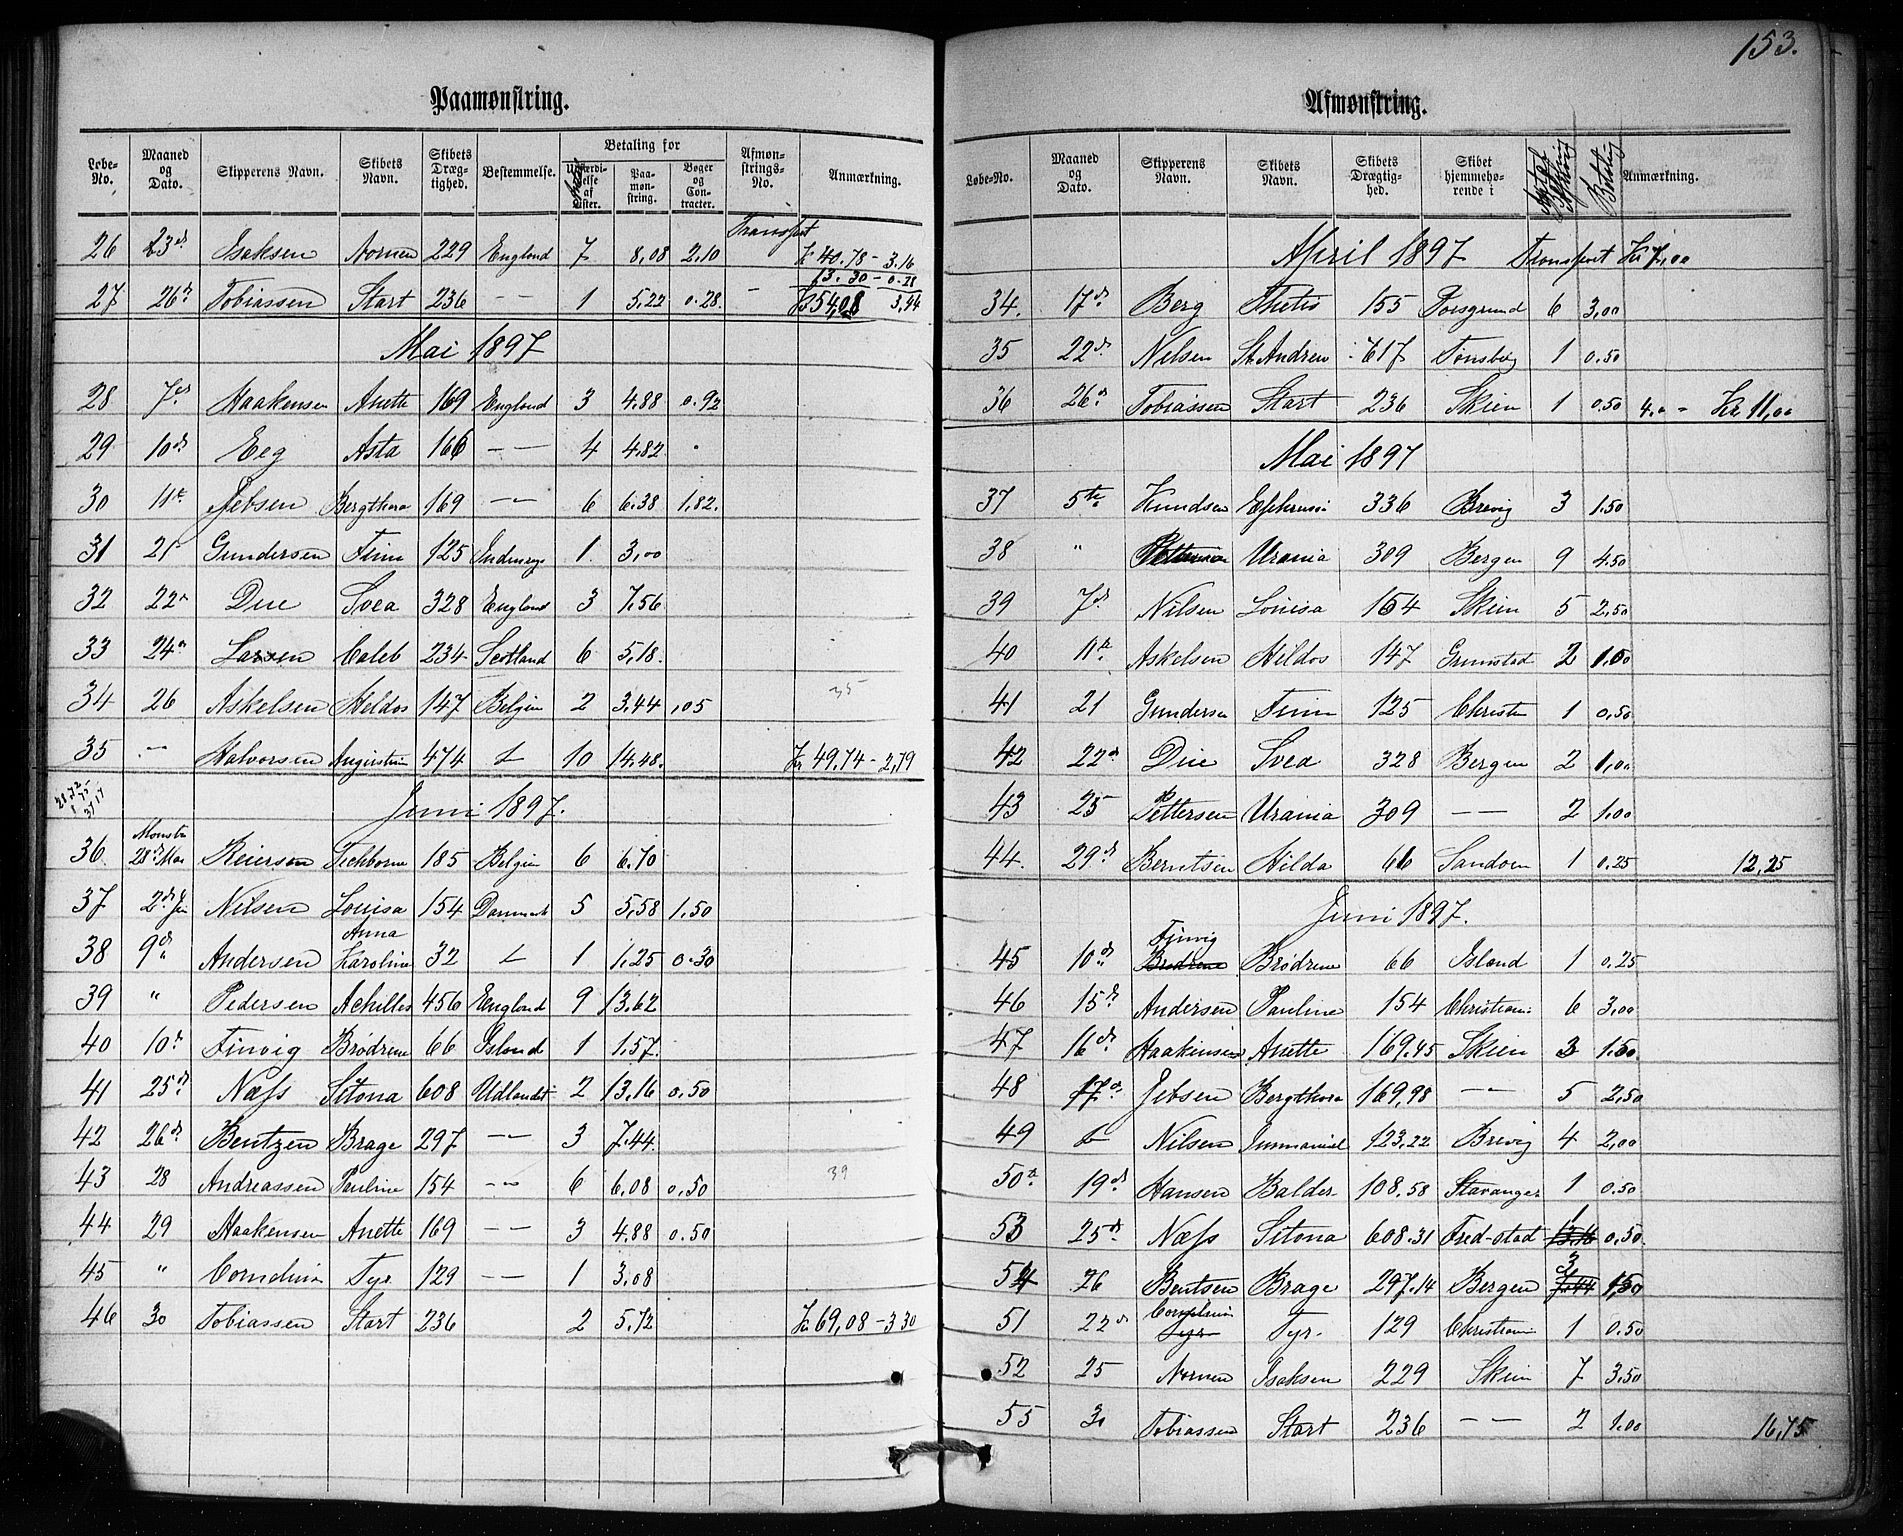 153.
Paamønstring.
Løbe-No. | Maaned og Dato. | Skipperens Navn. | Skibets Navn. | Skibets Dræg-tighed. | Bestemmelse. | Betaling for | Paa-møn-string. | Bøger og Con-tracter. | Afmøn-strings-No. | Anmærkning.
Transport
26 | 23d | Isaksen | Nornen | 229 | England | 7 | 8,08 | 2.10 | Kr 40.78 - 3.16
13.30 - 0.28
27 | 26d | Tobiassen | Start | 236 | — | 1 | 5.22 | 0.28 | - | Kr 54,08 3,44
Mai 1897
28 | 7d | Haakensen | Anette | 169 | England | 3 | 4.88 | 0.92
29 | 10d | Eeg | Asta | 166 | — | 4 | 4.82
30 | 11te | Jebsen | Bergthora | 169 | — | 6 | 6.38 | 1.82.
31 | 21 | Gundersen | Finn | 125 | Indenrigs | 1 | 3,00
32 | 22d | Due | Svea | 328 | England | 3 | 7.56
33 | 24d | Larsen | Caleb | 234 | Scotland | 6 | 5,18.
34 | 26 | Askelsen | Heldos | 147 | Belgien | 2 | 3.44 | ,05 | 35
35 | — | Halvorsen | Augustin | 474 | 10 | 14.48. | Kr 49.74 - 2,79
Juni 1897.
36 | 28d Mai | Reiersen | Tichborne | 185 | Belgien | 6 | 6.70
37 | 2d Jun | Nilsen | Louisa | 154 | Danmark | 5 | 5,58 | 1.50
38 | 9d | Andersen | Anna Karoline | 32 | 1 | 1.25 | 0.30
39 | " | Pedersen | Achilles | 456 | England | 9 | 13.62
40 | 10d | Finvig | Brødrene | 66 | Island | 1 | 1.57.
41 | 25d | Næss | Sitona | 608 | Udlandet | 2 | 13.16 | 0.50
42 | 26d | Bentzen | Brage | 297 | — | 3 | 7.44.
43 | 28 | Andreassen | Pauline | 154 | — | 6 | 6.08 | 0.50 | 39
44 | 29 | Haakensen | Anette | 169 | — | 3 | 4.88 | 0.50
45 | " | Cornelius | Tyr. | 129 | — | 1 | 3.08
46 | 30 | Tobiassen | Start | 236 | 2 | 5.72 | Kr 69,08 - 3.30
Afmønstring.
Løbe-No. | Maaned og Dato. | Skipperens Navn. | Skibets Navn. | Skibets Drægtig-hed. | Skibet hjemmehø-rende i | Betaling | Anmærkning.
April 1897 Transport Kr 7,00
34. | 17d | Berg | Thetis | 155 | Porsgrund | 6 | 3,00
35 | 22d | Nilsen | St. Andrew | 617 | Tønsberg | 1 | 0.50
36 | 26d | Tobiassen | Start | 236 | Skien | 1 | 0.50 | 4.00 - Kr 11,00
Mai 1897
37 | 5te | Knudsen | Ephrussi | 336 | Brevig | 3 | 1.50
38 | " | Pettersen | Urania | 309 | Bergen | 9 | 4.50
39 | 7d | Nilsen | Louisa | 154 | Skien | 5 | 2,50
40 | 11te | Askelsen | Hildos | 147 | Grimstad | 2 | 1.00
41 | 21 | Gundersen | Finn | 125 | Christn | 1 | 0.50
42 | 22d | Due | Svea | 328 | Bergen | 2 | 1,00
43 | 25 | Pettersen | Urania | 309 | — | 2 | 1.00
44. | 29d | Berntsen | Hilda | 66 | Sandoen | 1 | 0.25 | 12,25
Juni 1897.
45 | 10d | Finvig Brødrene | Brødrene | 66 | Island | 1 | 0.25
46 | 15d | Andersen | Pauline | 154 | Christiani | 6 | 3,00
47 | 16d | Haakensen | Anette | 169.45 | Skien | 3 | 1.50
48 | 17d | Jebsen | Bergthora | 169,98 | — | 5 | 2,50
49 | Nilsen | Immanuel | 123,22 | Brevig | 4 | 2,00
50 | 19d | Hansen | Balder | 108.58 | Stavanger | 1 | 0.50
53 | 25d | Næss | Sitona | 608.31 | Fred-stad | 1 13.16 | 0,50.
54 | 26 | Bentsen | Brage | 297.14 | Bergen | 3 7.44 | 1,50
51 | 22d | Cornelius Tyr | Tyr. | 129 | Christiani | 1 | 0.50
52 | 25 | Nornen | Isaksen | 229 | Skien | 7 | 3.50
55 | 30 | Tobiassen | Start | 236 | — | 2 | 1.00 | 16,75